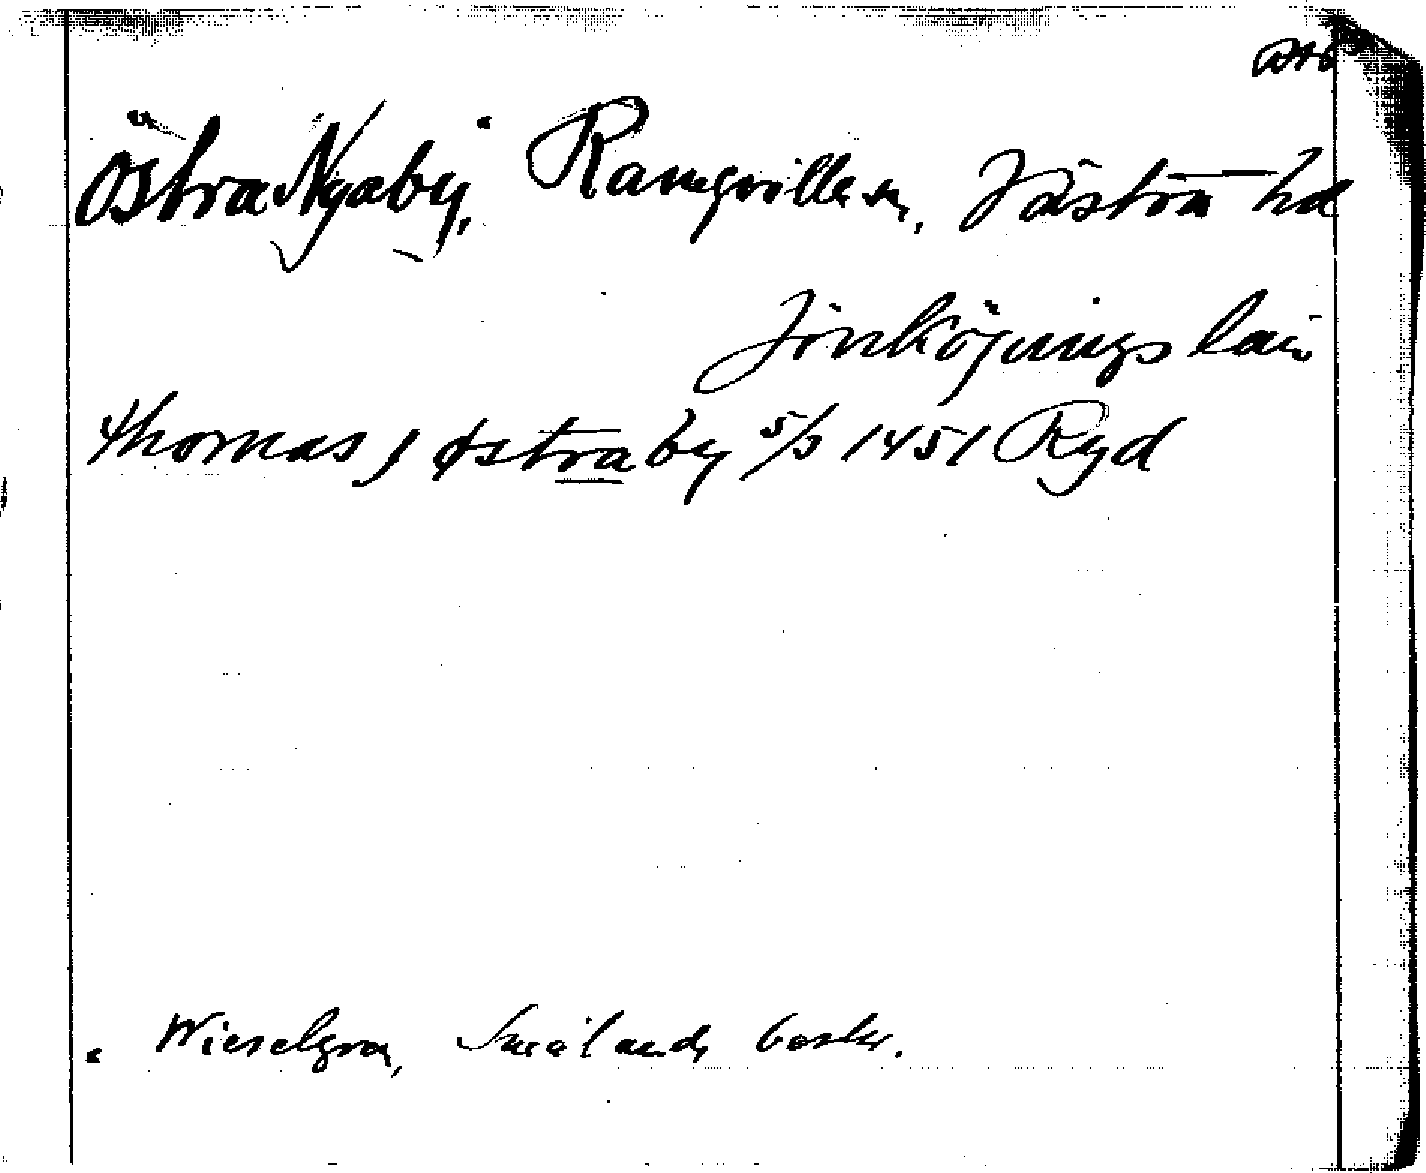 Östra Nyaby, Ramqvilla sn, Västra hd
Jönköpings län
thomas J østraby 5/3 1451 Ryd
Wieselgren, Smålands beskr.